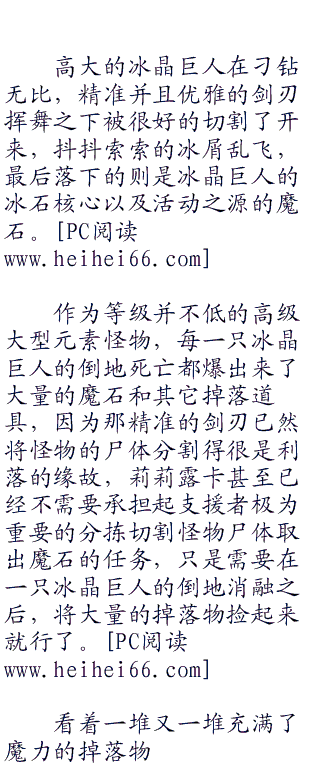 高大的冰晶巨人在刁钻
无比，精准并且优雅的剑刃
挥舞之下被很好的切割了开
来，抖抖索索的冰屑乱飞，
最后落下的则是冰晶巨人的
冰石核心以及活动之源的魔
石。[PC阅读
www.heihei66.com]
作为等级并不低的高级
大型元素怪物，每一只冰晶
巨人的倒地死亡都爆出来了
大量的魔石和其它掉落道
具，因为那精准的剑刃已然
将怪物的尸体分割得很是利
落的缘故，莉莉露卡甚至已
经不需要承担起支援者极为
重要的分拣切割怪物尸体取
出魔石的任务，只是需要在
一只冰晶巨人的倒地消融之
后，将大量的掉落物捡起来
就行了。[PC阅读
www.heihei66.com]
看着一堆又一堆充满了
魔力的掉落物